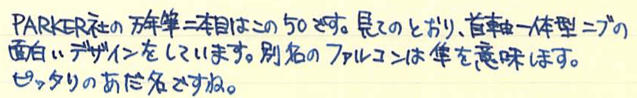 PARKER社の万年筆二本目はこの50です。見てのとおり、首軸一体型ニブの
面白いデザインをしています。別名のファルコンは隼を意味します。
ピッタリのあだ名ですね。